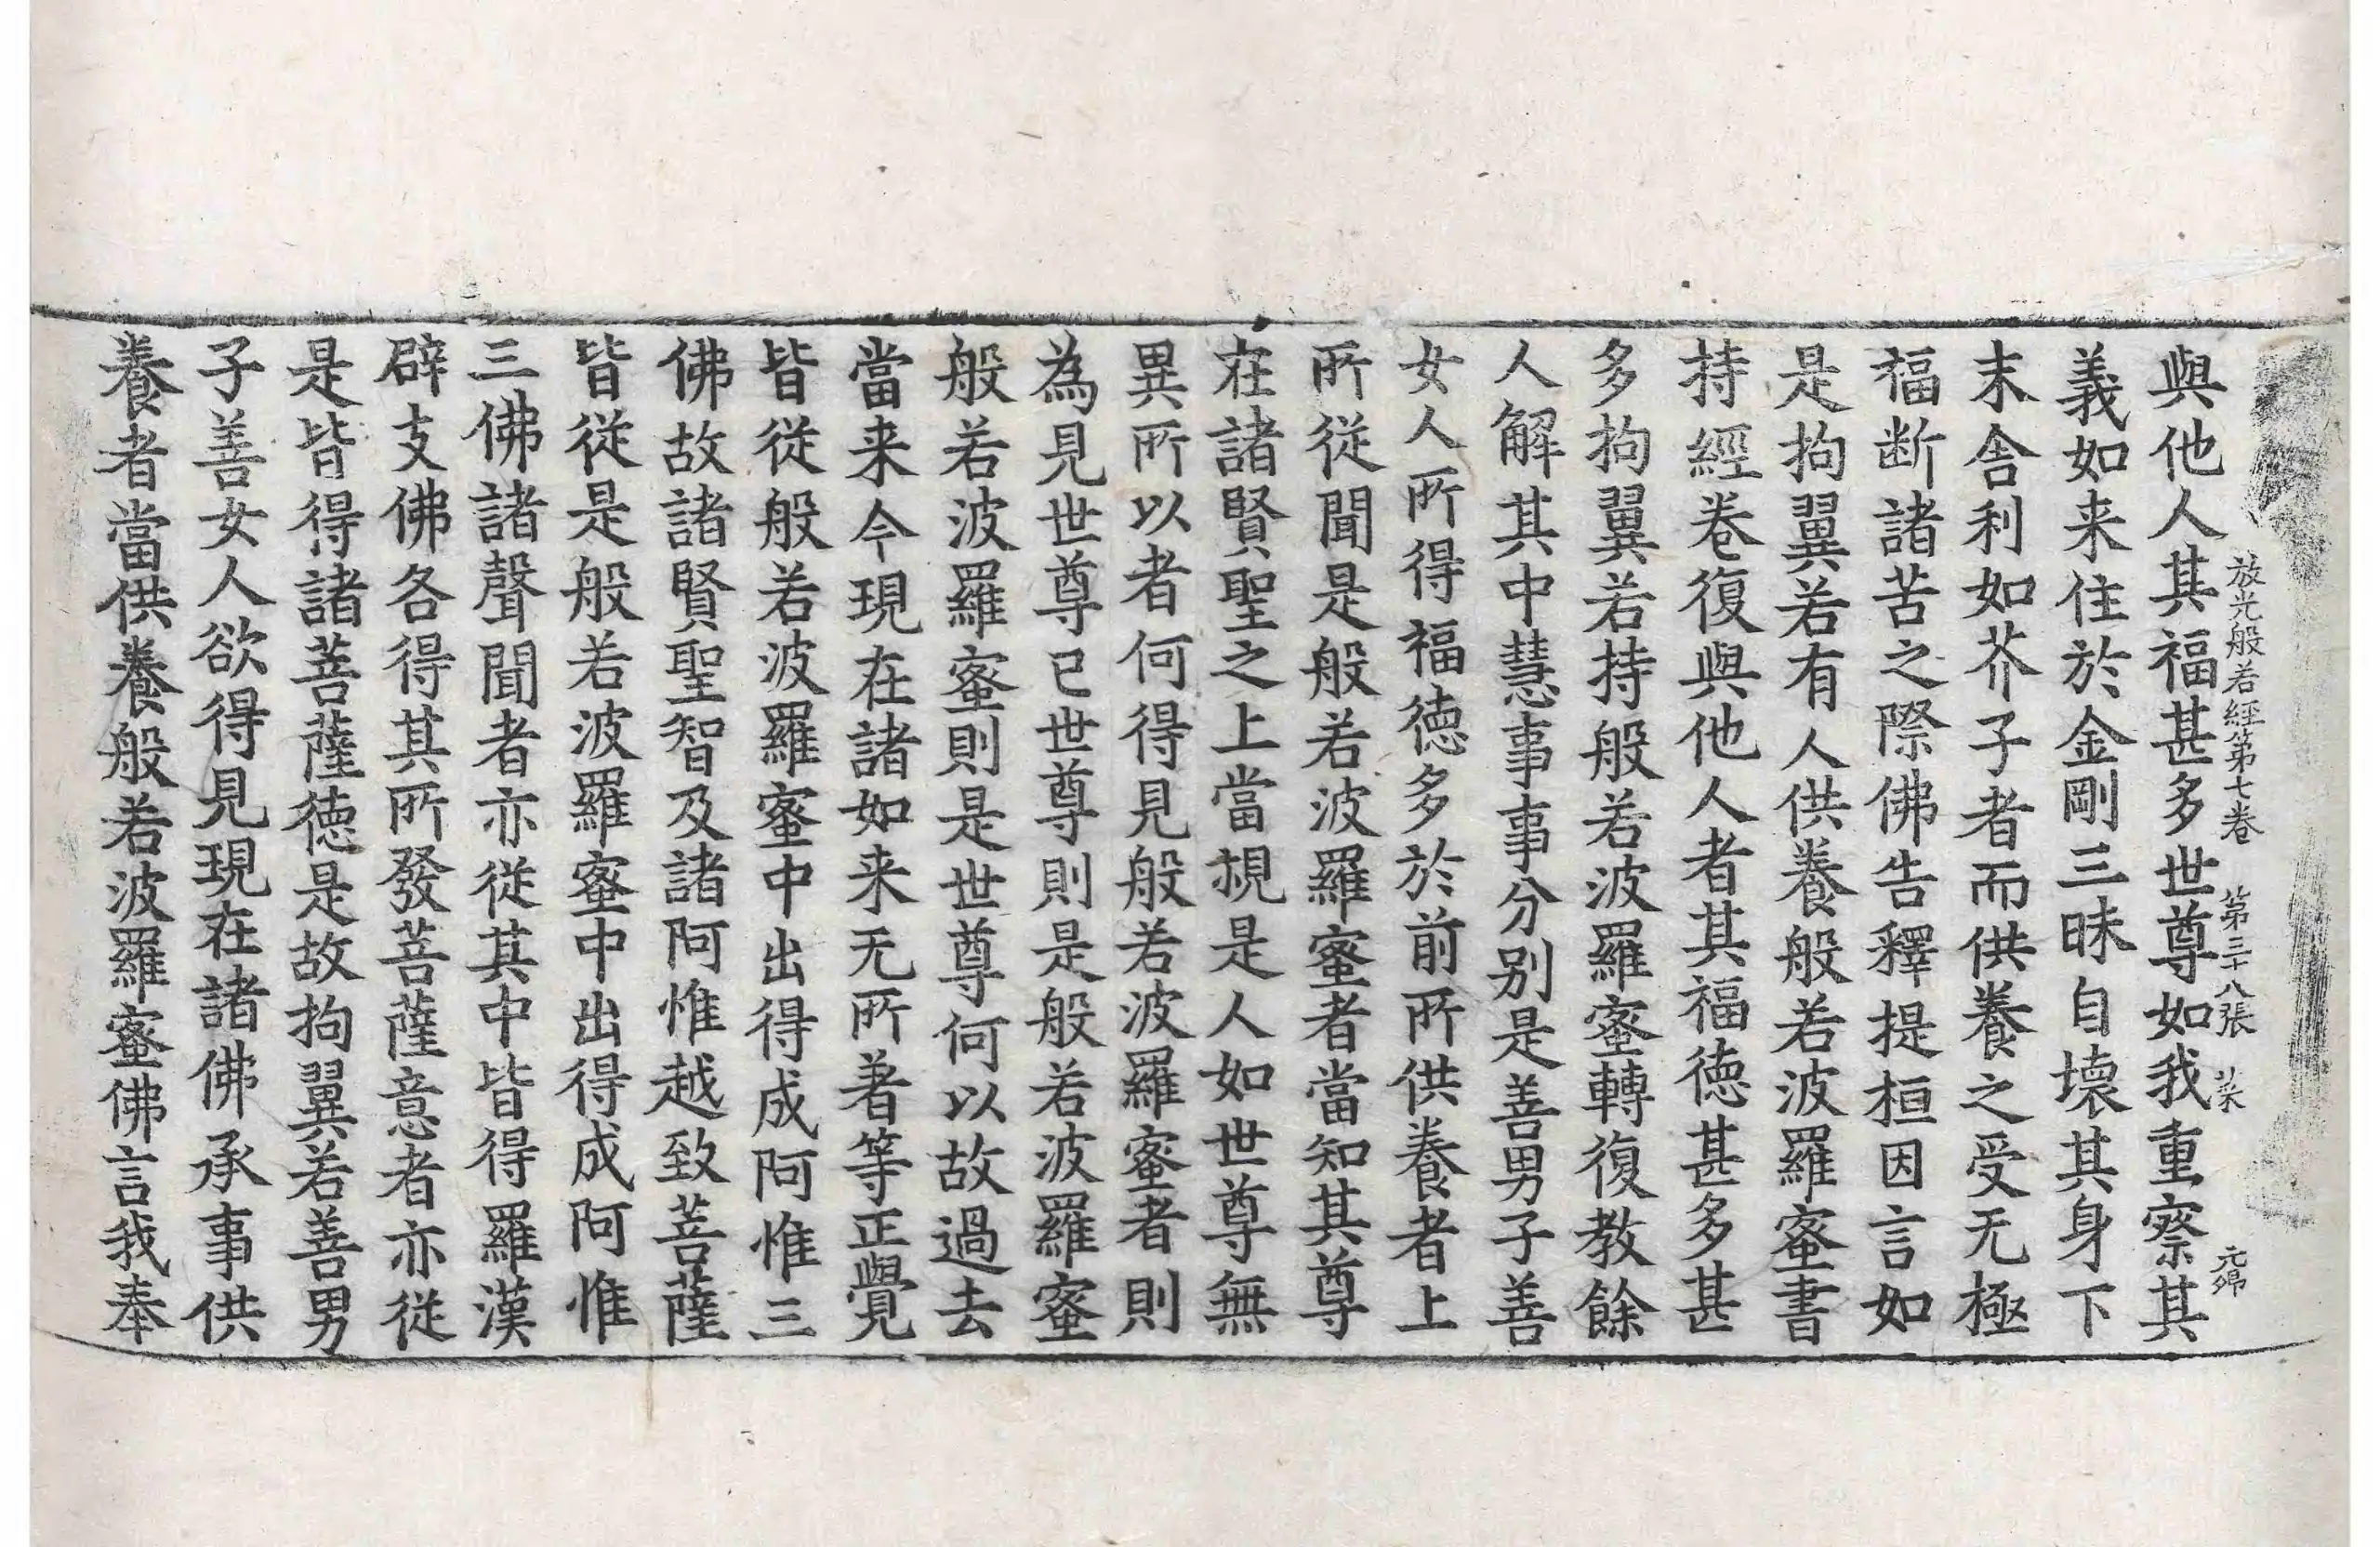 放光般若經第七卷 第三十八張 菜 元卿
與他人其福甚多世尊如我重察其
義如来住於金剛三昧自壞其身下
末舎利如芥子者而供養之受无極
福断諸苦之際佛告釋提桓因言如
是拘翼若有人供養般若波羅蜜書
持經卷復與他人者其福德甚多甚
多拘翼若持般若波羅蜜轉復教餘
人解其中慧事事分别是善男子善
女人所得福德多於前所供養者上
所從聞是般若波羅蜜者當知其尊
在諸賢聖之上當視是人如世尊無
異所以者何得見般若波羅蜜者則
為見世尊已世尊則是般若波羅蜜
般若波羅蜜則是世尊何以故過去
當来今現在諸如来无所著等正覺
皆從般若波羅蜜中出得成阿惟三
佛故諸賢聖智及諸阿惟越致菩薩
皆從是般若波羅蜜中出得成阿惟
三佛諸聲聞者亦從其中皆得羅漢
辟支佛各得其所發菩薩意者亦從
是皆得諸菩薩德是故拘翼若善男
子善女人欲得見現在諸佛承事供
養者當供養般若波羅蜜佛言我奉